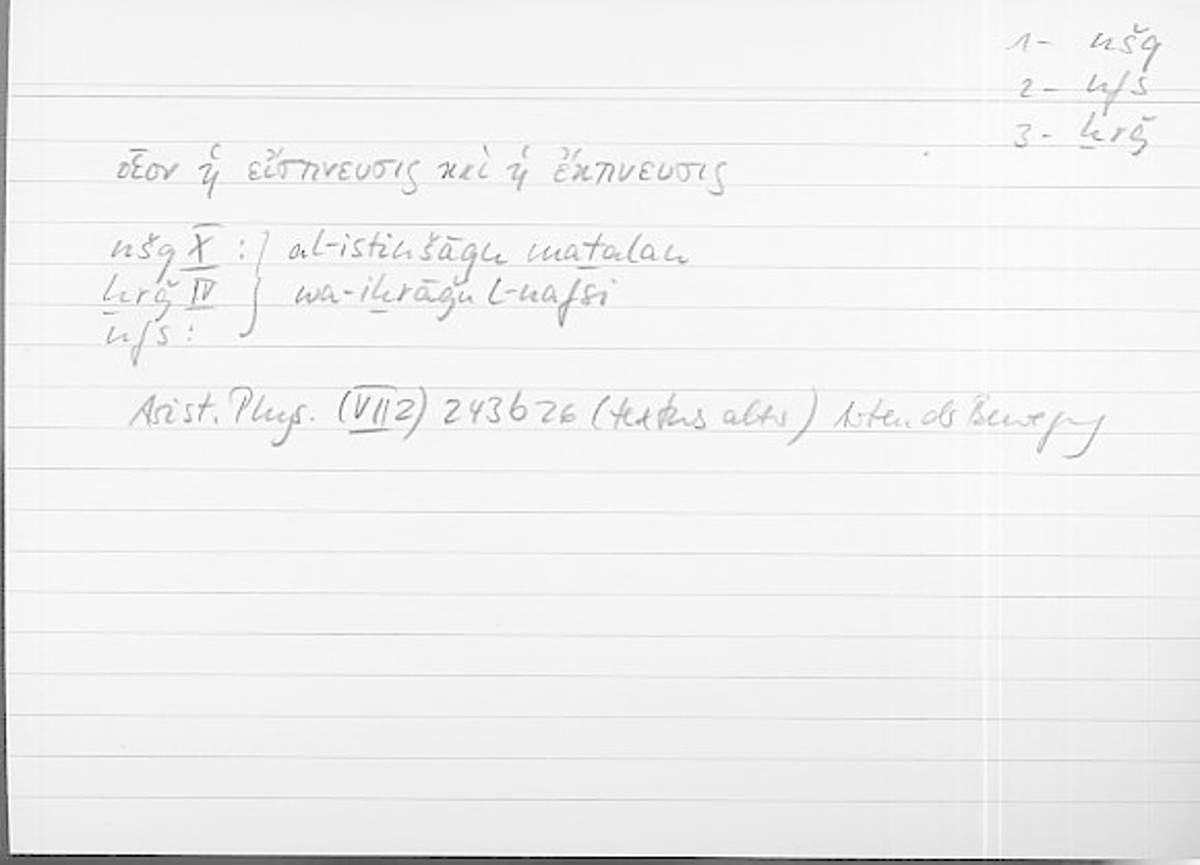 1- nšq
2- nfs
3- ḫrǧ
οἷον ἡ εἴσπνευσις καὶ ἡ ἔκπνευσις
nšq X : } al-istinšāqu maṯalan
ḫrǧ IV } wa-iḫrāǧu l-nafsi
nfs :
Arist. Phys. (VII 2) 243b26 (textus alter) Arten der Bewegung